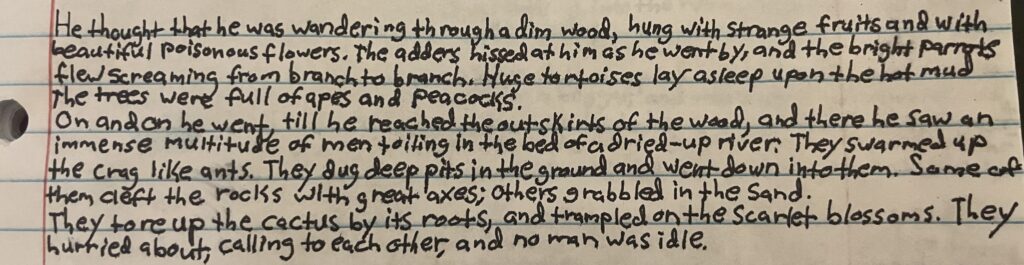 He thought that he was wandering through a dim wood, hung with strange fruits and with
beautiful poisonous flowers. The adders hissed at him as he went by, and the bright parrots
flew screaming from branch to branch. Huge tortoises lay asleep upon the hot mud
The trees were full of apes and peacocks.
On and on he went, till he reached the outskirts of the wood, and there he saw an
immense multitude of men toiling in the bed of a dried-up river. They swarmed up
the crag like ants. They dug deep pits in the ground and went down into them. Some of
them cleft the rocks with great axes; others grabbled in the sand.
They tore up the cactus by its roots, and trampled on the scarlet blossoms. They
hurried about, calling to each other, and no man was idle.